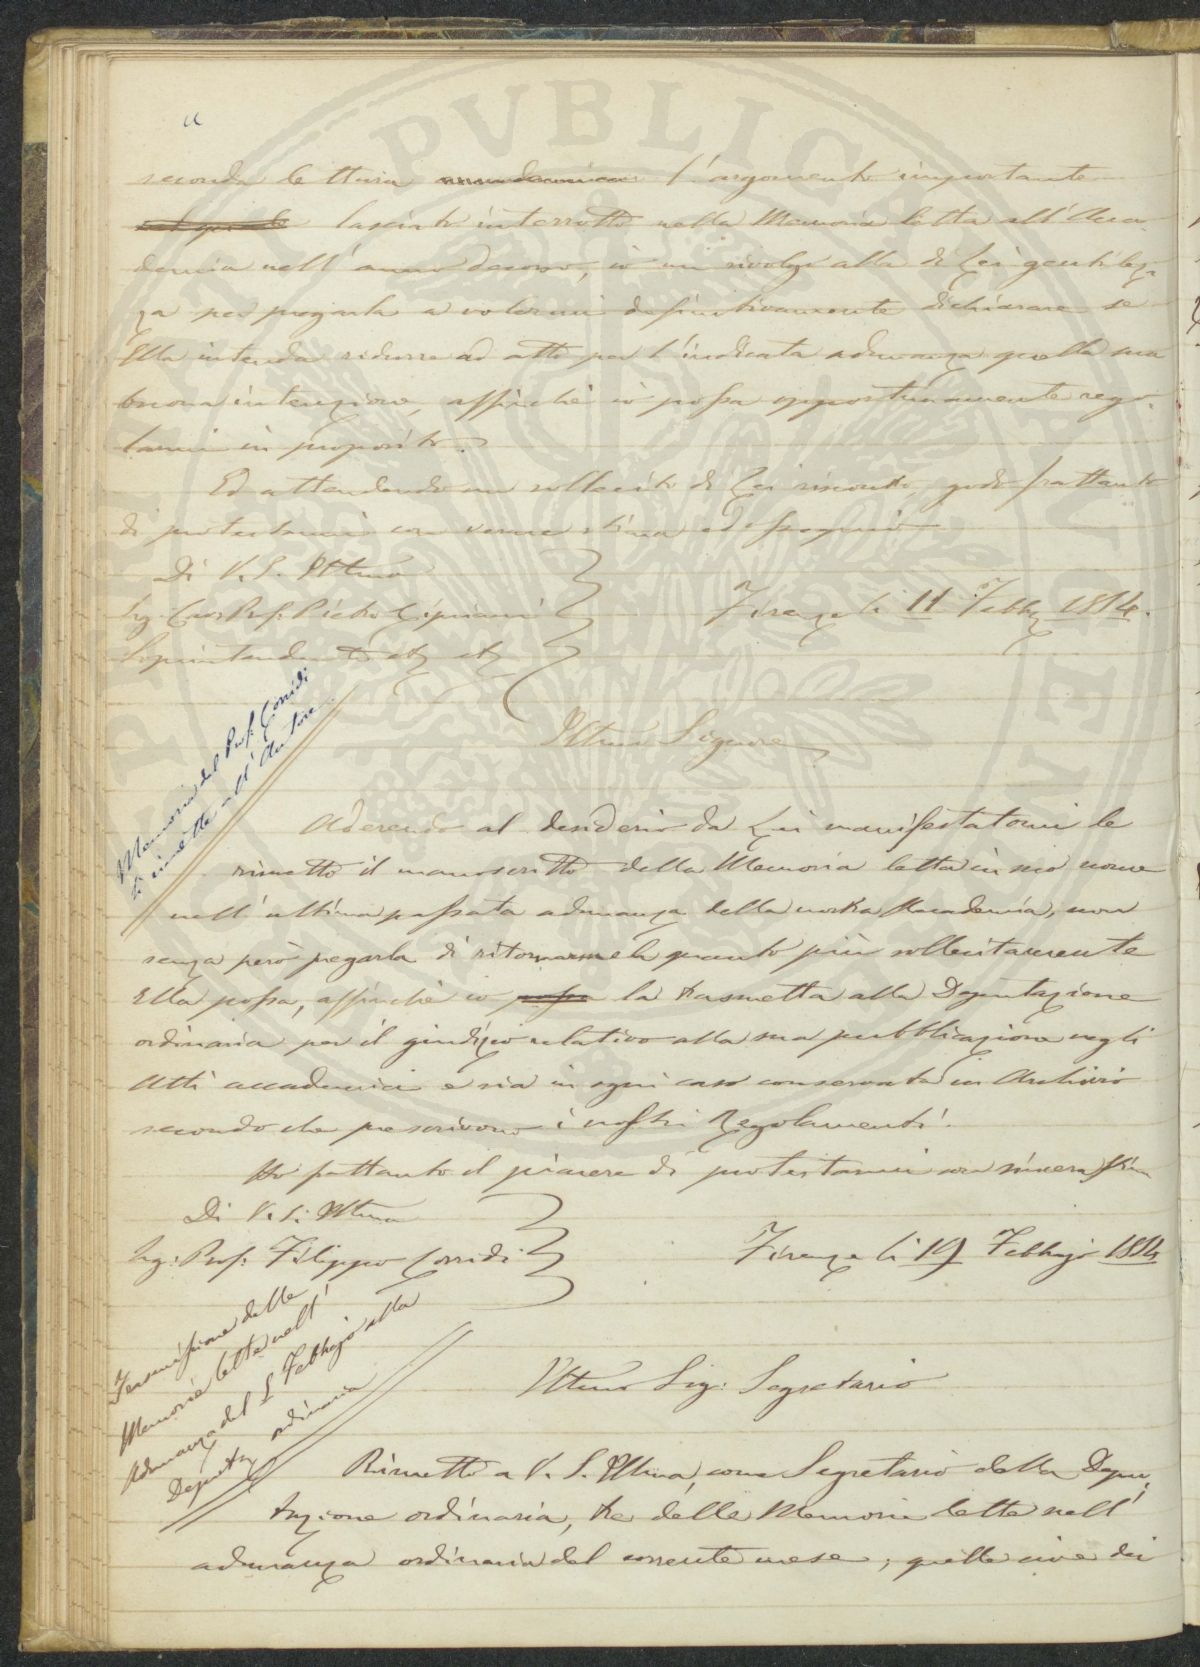 seconda lettura l'argomento importante
lasciato interrotto nella Memoria letta all'Acca-
demia nell'anno decorso, io mi rivolgo alla di Lei gentilez-
za per pregarla a volermi definitivamente dichiarare se
Ella intenda ridurre ad atto per l'indicata adunanza quella sua
buona intenzione, affinchè io possa opportunamente rego-
larmi in proposito.
Ed attendendo un sollecito di Lei riscontro, godo frattanto
di protestarmi con vera stima ed ossequio
Di V. S. Illma
Sig: Cav Prof. Pietro Cipriani
Soprintendente
Firenze li 11 Febb. 1874.
Illmo Signore
Memoria del Prof. Corridi
si rimette all'Autore
Aderendo al desiderio da Lei manifestatomi le
rimetto il manoscritto della Memoria letta in suo nome
nell'ultima passata adunanza della nostra Accademia, non
senza però pregarla di ritornarmela quanto più sollecitamente
Ella possa, affinchè io possa la trasmetta alla Deputazione
ordinaria per il giudizio relativo alla sua pubblicazione negli
Atti accademici e sia in ogni caso conservata in Archivio
secondo che prescrivono i nostri Regolamenti.
Ho frattanto il piacere di protestarmi con sincera stima
Di V. S. Illma
Sig: Prof: Filippo Corridi
Firenze li 19 Febbrajo 1874
Trasmissione delle
Memorie lette nell'
Adunanza del Febbrajo alla
Deputaz ordinaria
Illmo Sig: Segretario
Rimetto a V. S. Illma, come Segretario della Depu-
tazione ordinaria, tre delle Memorie lette nell'
adunanza ordinaria del corrente mese; quelle cioè dei